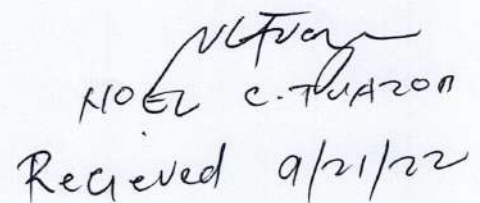 NOEL C. TUAZON
Recieved 9/21/22